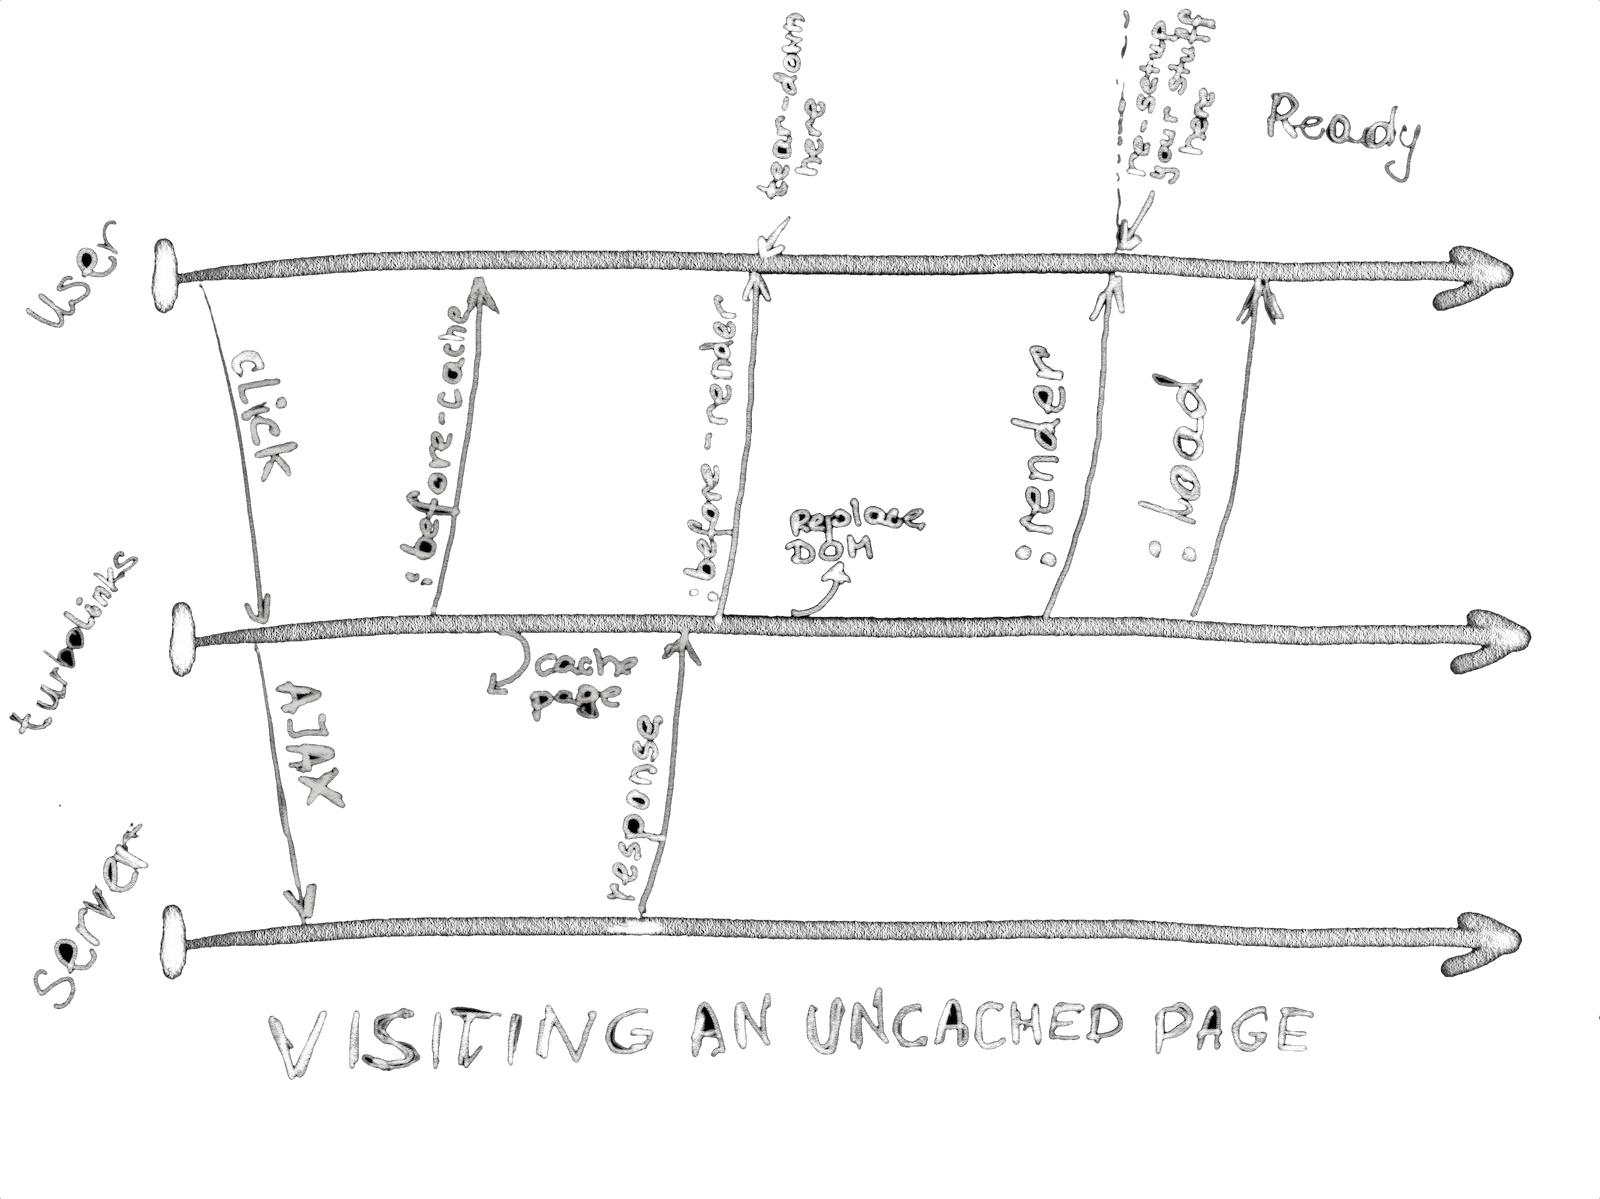 tear-down
here
re-setup
your stuff
here
Ready
User
click
:before-cache
:before-render
:render
:load
Replace
DOM
turbolinks
cache
page
AJAX
response
Server
VISITING AN UNCACHED PAGE